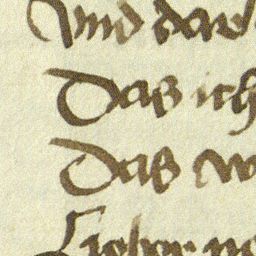 Vnd dar
Das ich
Das w
Lieber ne